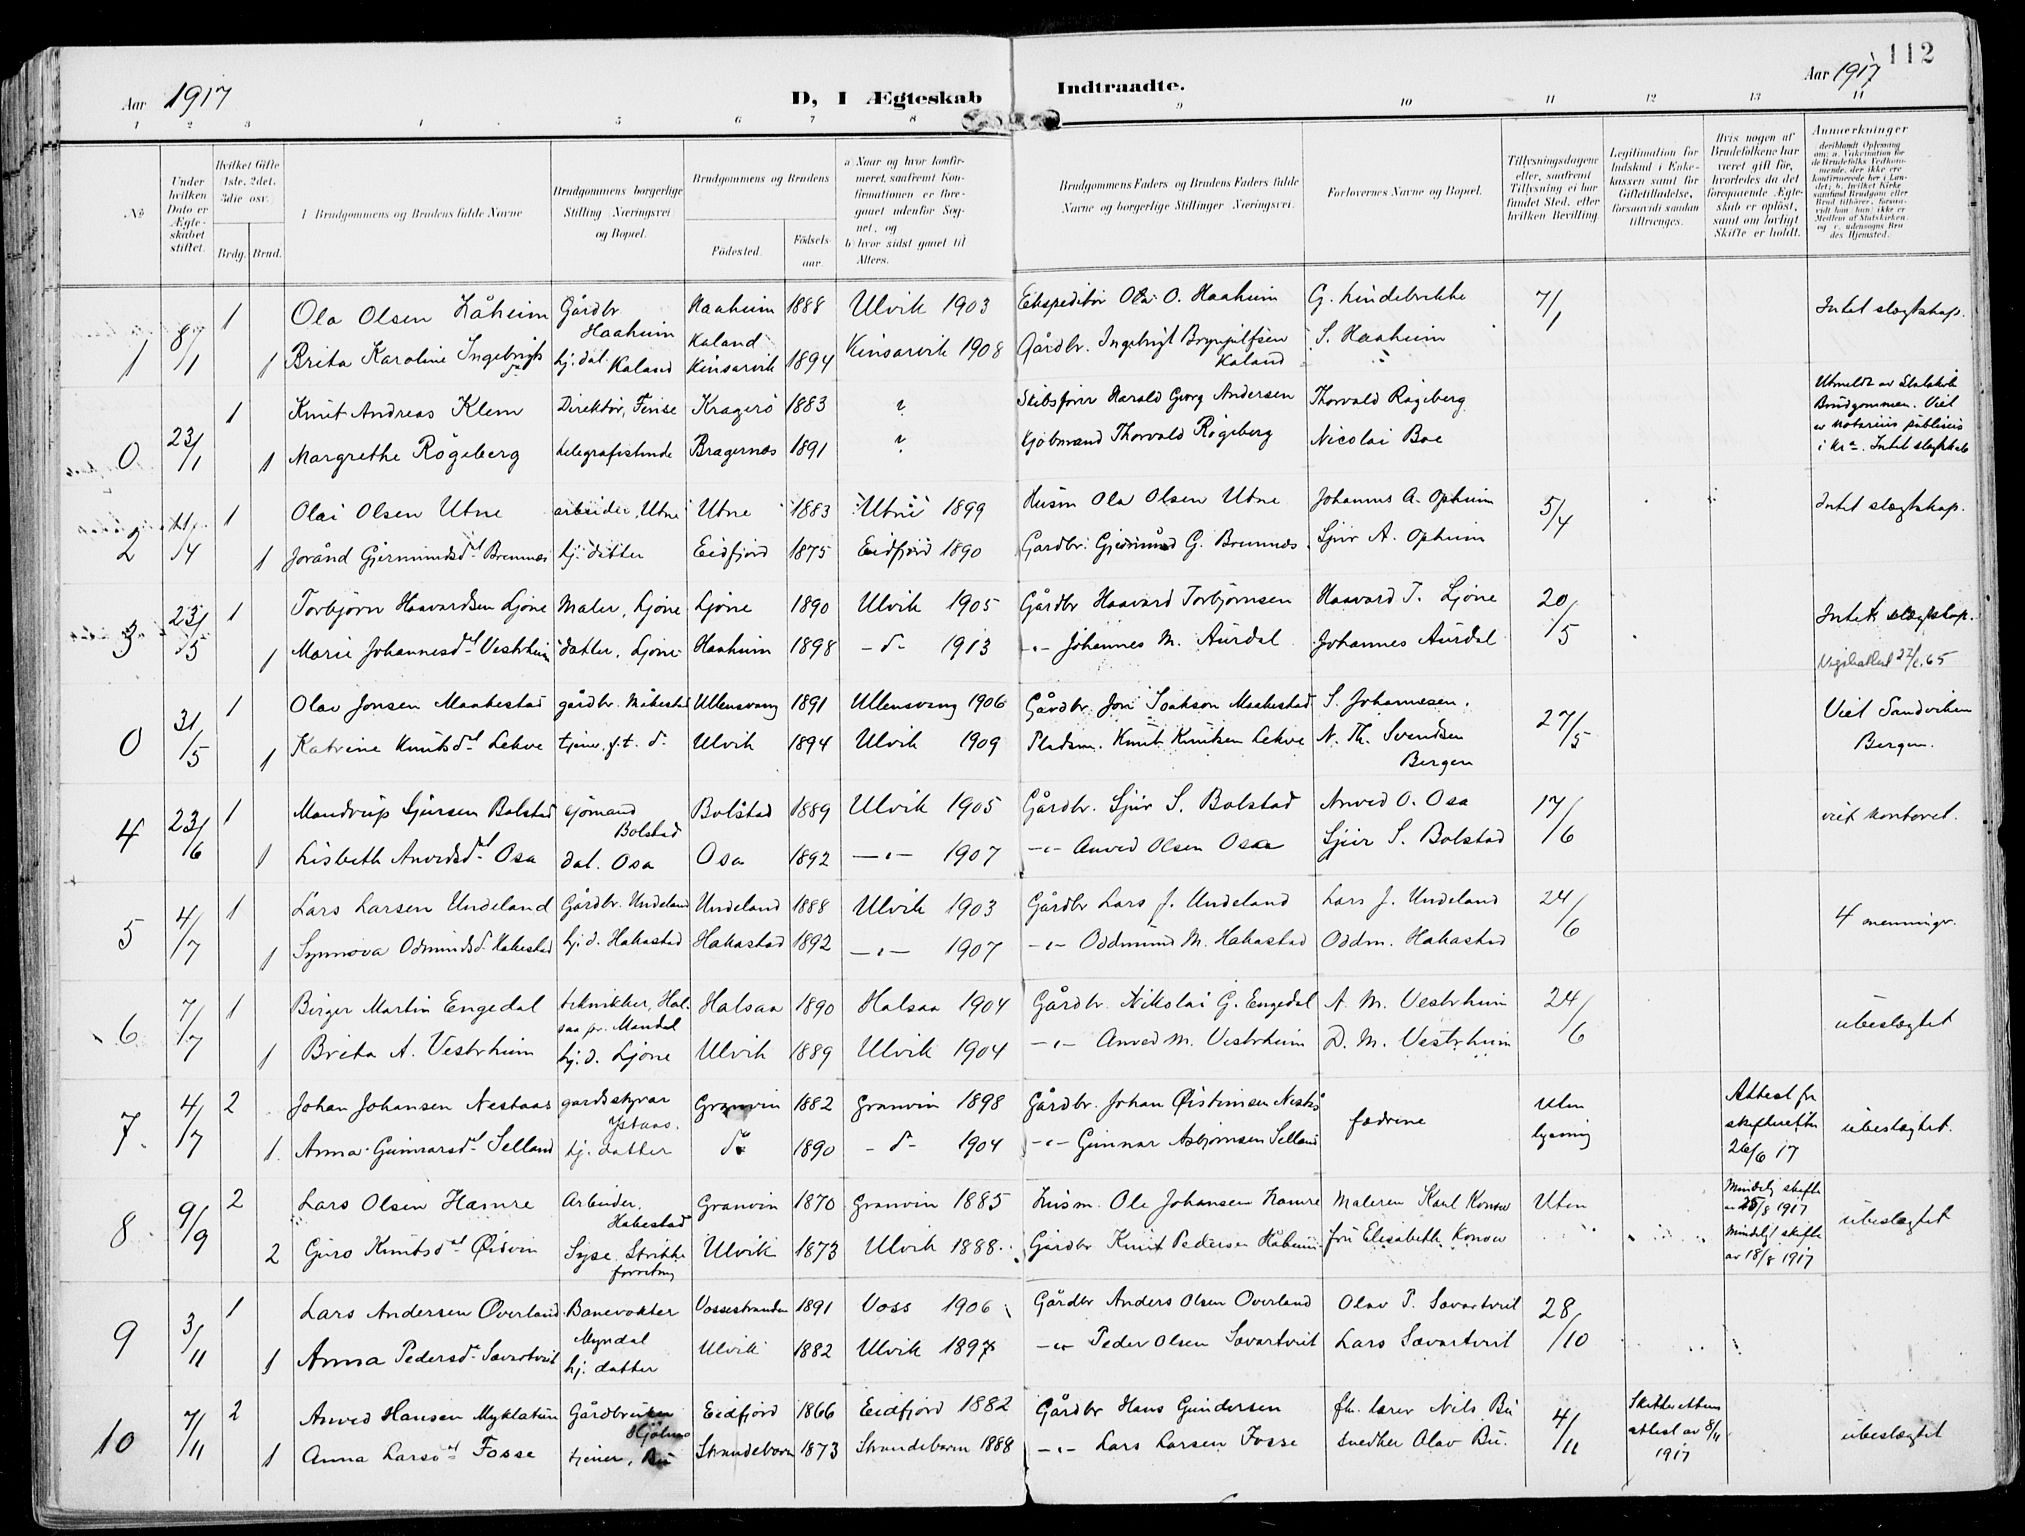 112
Aar 1917
D, I Ægteskab Indtraadte.
Aar 1917
1 2 3 4 5 6 7 8 9 10 11 12 13 14
No
Under hvilken Dato er Ægteskabet stiftet.
Hvilket Gifte 1ste, 2det, 3die osv.
Brdg. Brud.
1 Brudgommens og Brudens fulde Navne
Brudgommens borgerlige Stilling Næringsvei og Bopæl.
Brudgommens og Brudens
Fødested. Fødselsaar.
a Naar og hvor konfirmeret, saafremt Konfirmationen er foregaaet udenfor Sognet, og
b hvor sidst gaaet til Alters.
Brudgommens Faders og Brudens Faders fulde Navne og borgerlige Stillinger Næringsvei.
Forlovernes Navne og Bopæl.
Tillysningsdagene eller, saafremt Tillysning ei har fundet Sted, efter hvilken Bevilling
Legitimation for Indskud i Enkekassen samt for Giftetilladelse, forsaavidt saadan tiltrænges.
Hvis nogen af Brudefolkene har været gift før, hvorledes da det foregaaende Ægteskab er opløst, samt om lovligt Skifte er holdt.
Anmerkninger
1 8/1 1 Ola Olsen Håheim Gårdbr Haaheim Haaheim 1888 Ulvik 1903 Ekspeditør Ola O. Haaheim G. Lindebrekke 7/1 Intet slægtskap.
1 Brita Karoline Ingebrigtsd. hj. dat. Kaland Kaland Kinsarvik 1894 Kinsarvik 1908 Gårdbr. Ingebrigt Brynjulfsen Kaland S. Haaheim
0 23/1 1 Knut Andreas Klem Direktør, Finse Kragerö 1883 ? Skibsfører Harald Georg Andersen Thorvald Rögeberg Utmeldt av Statskirk Brudgommen. Viet av notarius publicus i Kra. Intet slægtskab
1 Margrethe Rögeberg telegrafistinde Bragernes 1891 ? Kjöbmand Thorvald Rögeberg Nicolai Boe
2 /4 1 Olai Olsen Utne arbeider, Utne Utne 1883 Utne 1899 Husm Ola Olsen Utne Johannes A. Opheim 5/4 Intet slægtskap.
1 Jorånd Gjermundsdt Bremnes hj. datter Eidfjord 1875 Eidfjord 1890 Gardbr. Gjermund G. Bremnes Sjur A. Opheim
3 23/5 1 Torbjörn Haavardsen Ljöne Maler, Ljöne Ljöne 1890 Ulvik 1905 Gårdbr Haavard Torbjörnsen Haavard T. Ljöne 20/5 Intet slægtskap.
1 Marie Johannesdt Vestrheim datter, Ljöne Haaheim 1898 - do - 1913 -"- Johannes M. Aurdal Johannes Aurdal
0 31/5 1 Olav Jonsen Maakestad gårdbr. Måkestad Ullensvang 1891 Ullensvang 1906 Gårdbr. Jon Isakson Maakestad S. Johannesen. 27/5 Viet Sandviken Bergen.
1 Katrine Knutsdt Lekve tjener, f.t. do Ulvik 1894 Ulvik 1909 Pladsm. Knut Knutsen Lekve N. Th. Svendsen Bergen
4 23/6 1 Mandrup Sjursen Bolstad sjömand Bolstad Bolstad 1889 Ulvik 1905 Gårdbr. Sjur S. Bolstad Arved O. Osa 17/6 viet kontoret.
1 Lisbeth Arvedsdt Osa dat. Osa Osa 1892 -"- 1907 -"- Anved Olsen Osa Sjur S. Bolstad
5 4/7 1 Lars Larsen Undeland Gårdbr. Undeland Undeland 1888 Ulvik 1903 Gårdbr Lars J. Undeland Lars J. Undeland 24/6 4 menninger.
1 Synnova Odmundsd. Hakestad hj. d. Hakastad Hakastad 1892 -"- 1907 -"- Oddmund M. Hakastad Oddm. Hakastad
6 7/7 1 Birger Martin Engedal tekniker, Halsaa pr. Mandal Halsaa 1890 Halsaa 1904 Gårdbr. Nikolai G. Engedal A. M. Vestrheim 24/6 ubeslægtet
1 Brita A. Vestrheim hj. d. Ljöne Ulvik 1889 Ulvik 1904 -"- Anved M. Vestrheim D. M. Vestrheim
7. 4/7 2 Johan Johansen Nestaas gardsstyrar Ystaas. Granvin 1882 Granvin 1898 Gårdbr. Johan Øistensen Nestås fædrene Uten lysning Attest fra skifteretten 26/6 17 ubeslægtet.
1. Anna Gunnarsdt Selland hj. datter do 1890 - do - 1904 -"- Gunnar Asbjörnsen Selland
8 9/9 2 Lars Olsen Hamre Arbeider, Hakestad Granvin 1870 Granvin 1885 Husm. Ole Johansen Hamre Maleren Karl Konow Uten Mindelig skifte av 25/8 1917 ubeslægtet
2 Guro Knutsdt Øidvin Syse. Strikkeforretning Ulvik 1873 Ulvik 1888. Gårdbr Knut Pedersen Håheim fru Elisabeth Konow Mindeligt skifte av 18/8 1917
9 3/11 1 Lars Andersen Överland Banevokter Myrdal Vossestranden 1891 Voss 1906 Gårdbr Anders Olsen Överland Olav P. Savartveit 28/10
1 Anna Pedersd. Savartveit hj. datter Ulvik 1882 Ulvik 1897 -"- Peder Olsen Savartveit Lars Savartveit
10 7/11 2 Anved Hansen Myklatun Gårdbruker Hjölmo Eidfjord 1866 Eidfjord 1882 Gårdbr Hans Gundersen fh. lærer Nils Bu 4/11 Skifterettens attest av 8/11 1917 ubeslægtet
1 Anna Larsdt Fosse tjener, Bu Strandebarm 1873 Strandebarm 1888 -"- Lars Larsen Fosse snedker Olav Bu.